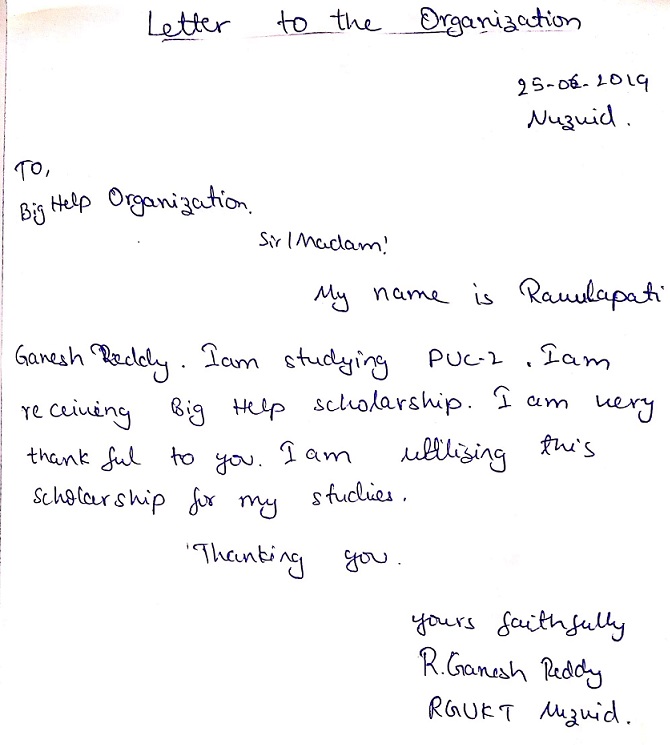 Letter to the Organization
25-06-2019
Nuzvid.
TO,
Big Help Organization.
Sir/Madam!
My name is Ravulapati
Ganesh Reddy. Iam studying PUC-2. Iam
receiving Big Help scholarship. I am very
thankful to you. I am utilizing this
scholarship for my studies.
Thanking you.
yours faithfully
R.Ganesh Reddy
RGUKT Nuzvid.